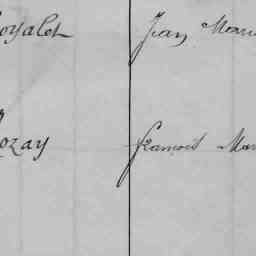 oyalet Jean Mari
ozay françois Mar